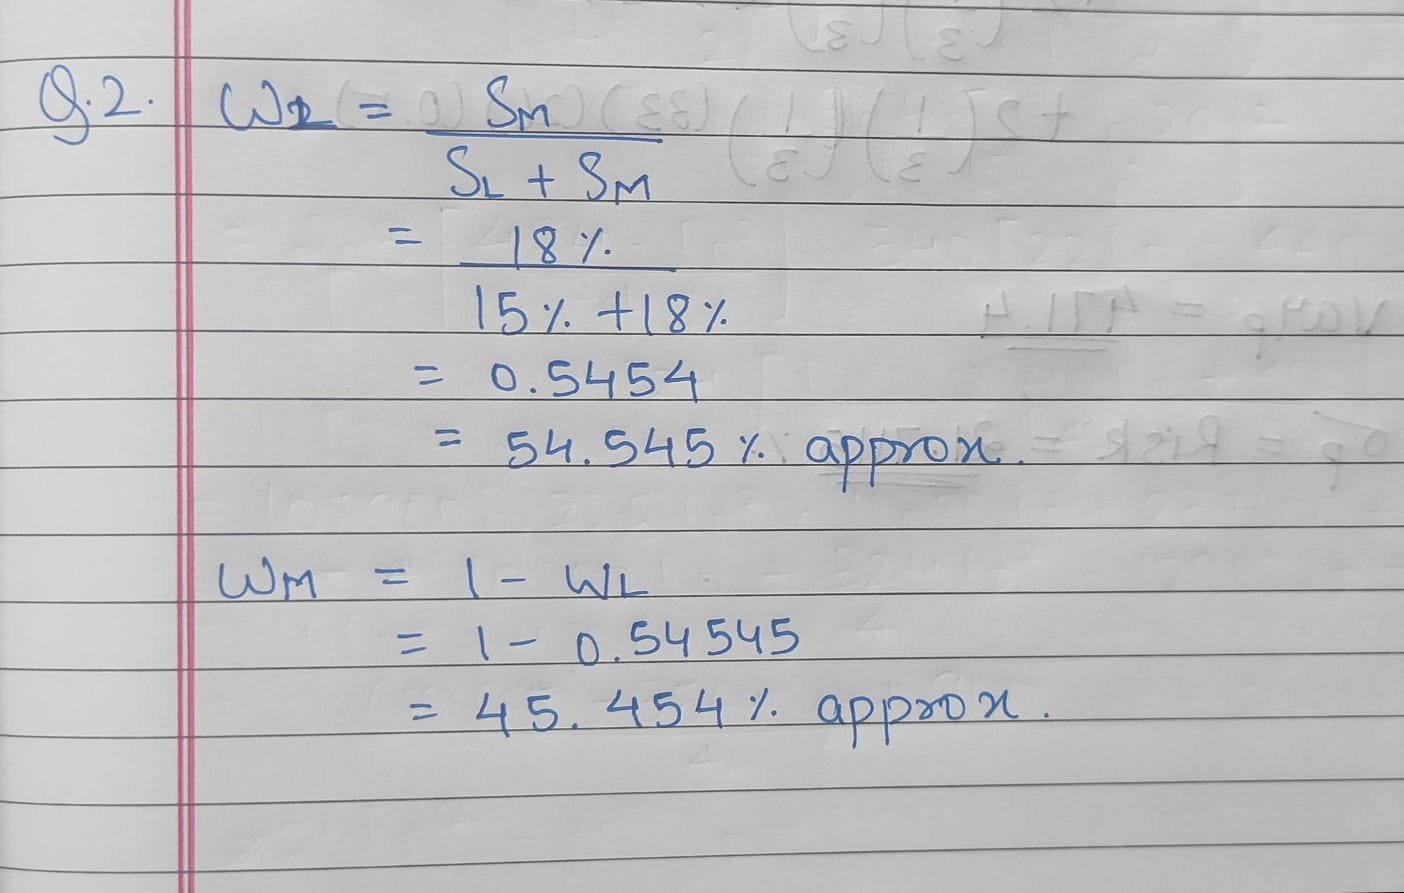 Q.2. WL = SM
SL + SM
= 18%
15% + 18%
= 0.5454
= 54.545% approx.
WM = 1 - WL
= 1 - 0.54545
= 45.454% approx.